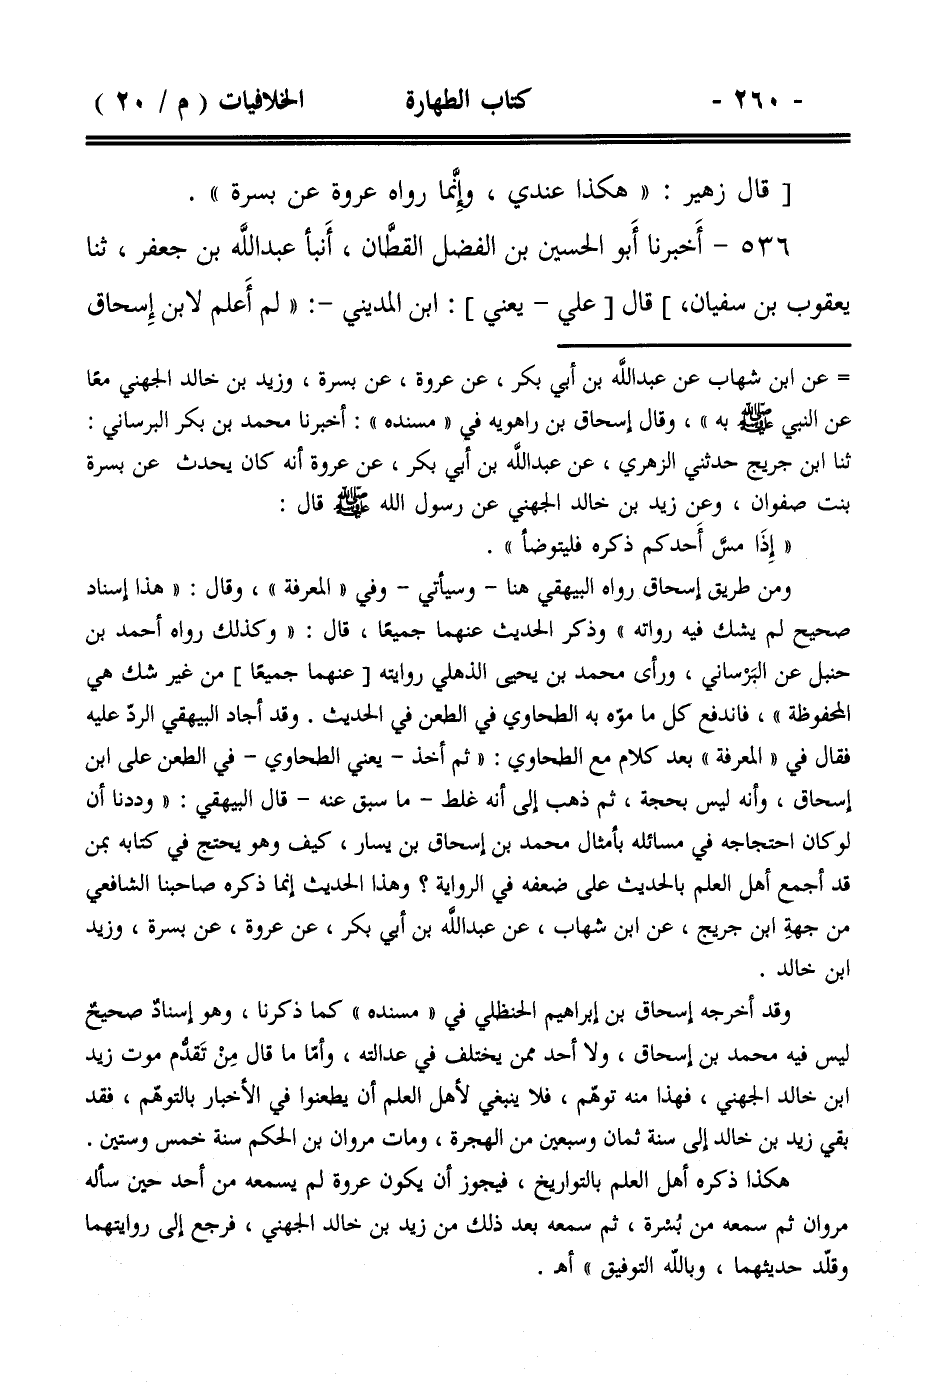 - ٢٦٠ - كتاب الطهارة الخلافيات ( م / ٢٠ )
[ قال زهير : « هكذا عندي ، وإِنَّما رواه عروة عن بسرة » .
٥٣٦ - أَخبرنا أَبو الحسين بن الفضل القطَّان ، أَنبأ عبدالله بن جعفر ، ثنا
يعقوب بن سفيان، ] قال [ علي - يعني ] : ابن المديني -: « لم أَعلم لابن إِسحاق
= عن ابن شهاب عن عبدالله بن أبي بكر ، عن عروة ، عن بسرة ، وزيد بن خالد الجهني معًا
عن النبي ﷺ به » ، وقال إسحاق بن راهويه في « مسنده » : أخبرنا محمد بن بكر البرساني :
ثنا ابن جريج حدثني الزهري ، عن عبدالله بن أبي بكر ، عن عروة أنه كان يحدث عن بسرة
بنت صفوان ، وعن زيد بن خالد الجهني عن رسول الله ﷺ قال :
« إِذَا مسَّ أَحدكم ذكره فليتوضأ » .
ومن طريق إسحاق رواه البيهقي هنا - وسيأتي - وفي « المعرفة » ، وقال : « هذا إسناد
صحيح لم يشك فيه رواته » وذكر الحديث عنهما جميعًا ، قال : « وكذلك رواه أحمد بن
حنبل عن البَرْساني ، ورأى محمد بن يحيى الذهلي روايته [ عنهما جميعًا ] من غير شك هي
المحفوظة » ، فاندفع كل ما موّه به الطحاوي في الطعن في الحديث . وقد أجاد البيهقي الردّ عليه
فقال في « المعرفة » بعد كلام مع الطحاوي : « ثم أخذ - يعني الطحاوي - في الطعن على ابن
إسحاق ، وأنه ليس بحجة ، ثم ذهب إلى أنه غلط - ما سبق عنه - قال البيهقي : « وددنا أن
لو كان احتجاجه في مسائله بأمثال محمد بن إسحاق بن يسار ، كيف وهو يحتج في كتابه بمن
قد أجمع أهل العلم بالحديث على ضعفه في الرواية ؟ وهذا الحديث إنما ذكره صاحبنا الشافعي
من جهةِ ابن جريج ، عن ابن شهاب ، عن عبدالله بن أبي بكر ، عن عروة ، عن بسرة ، وزيد
ابن خالد .
وقد أخرجه إسحاق بن إبراهيم الحنظلي في « مسنده » كما ذكرنا ، وهو إسنادٌ صحيحٌ
ليس فيه محمد بن إسحاق ، ولا أحد ممن يختلف في عدالته ، وأمّا ما قال مِنْ تَقدُّم موت زيد
ابن خالد الجهني ، فهذا منه توهّم ، فلا ينبغي لأهل العلم أن يطعنوا في الأخبار بالتوهّم ، فقد
بقي زيد بن خالد إلى سنة ثمان وسبعين من الهجرة ، ومات مروان بن الحكم سنة خمس وستين .
هكذا ذكره أهل العلم بالتواريخ ، فيجوز أن يكون عروة لم يسمعه من أحد حين سأله
مروان ثم سمعه من بُسْرة ، ثم سمعه بعد ذلك من زيد بن خالد الجهني ، فرجع إلى روايتهما
وقلّد حديثهما ، وبالله التوفيق » أهـ .